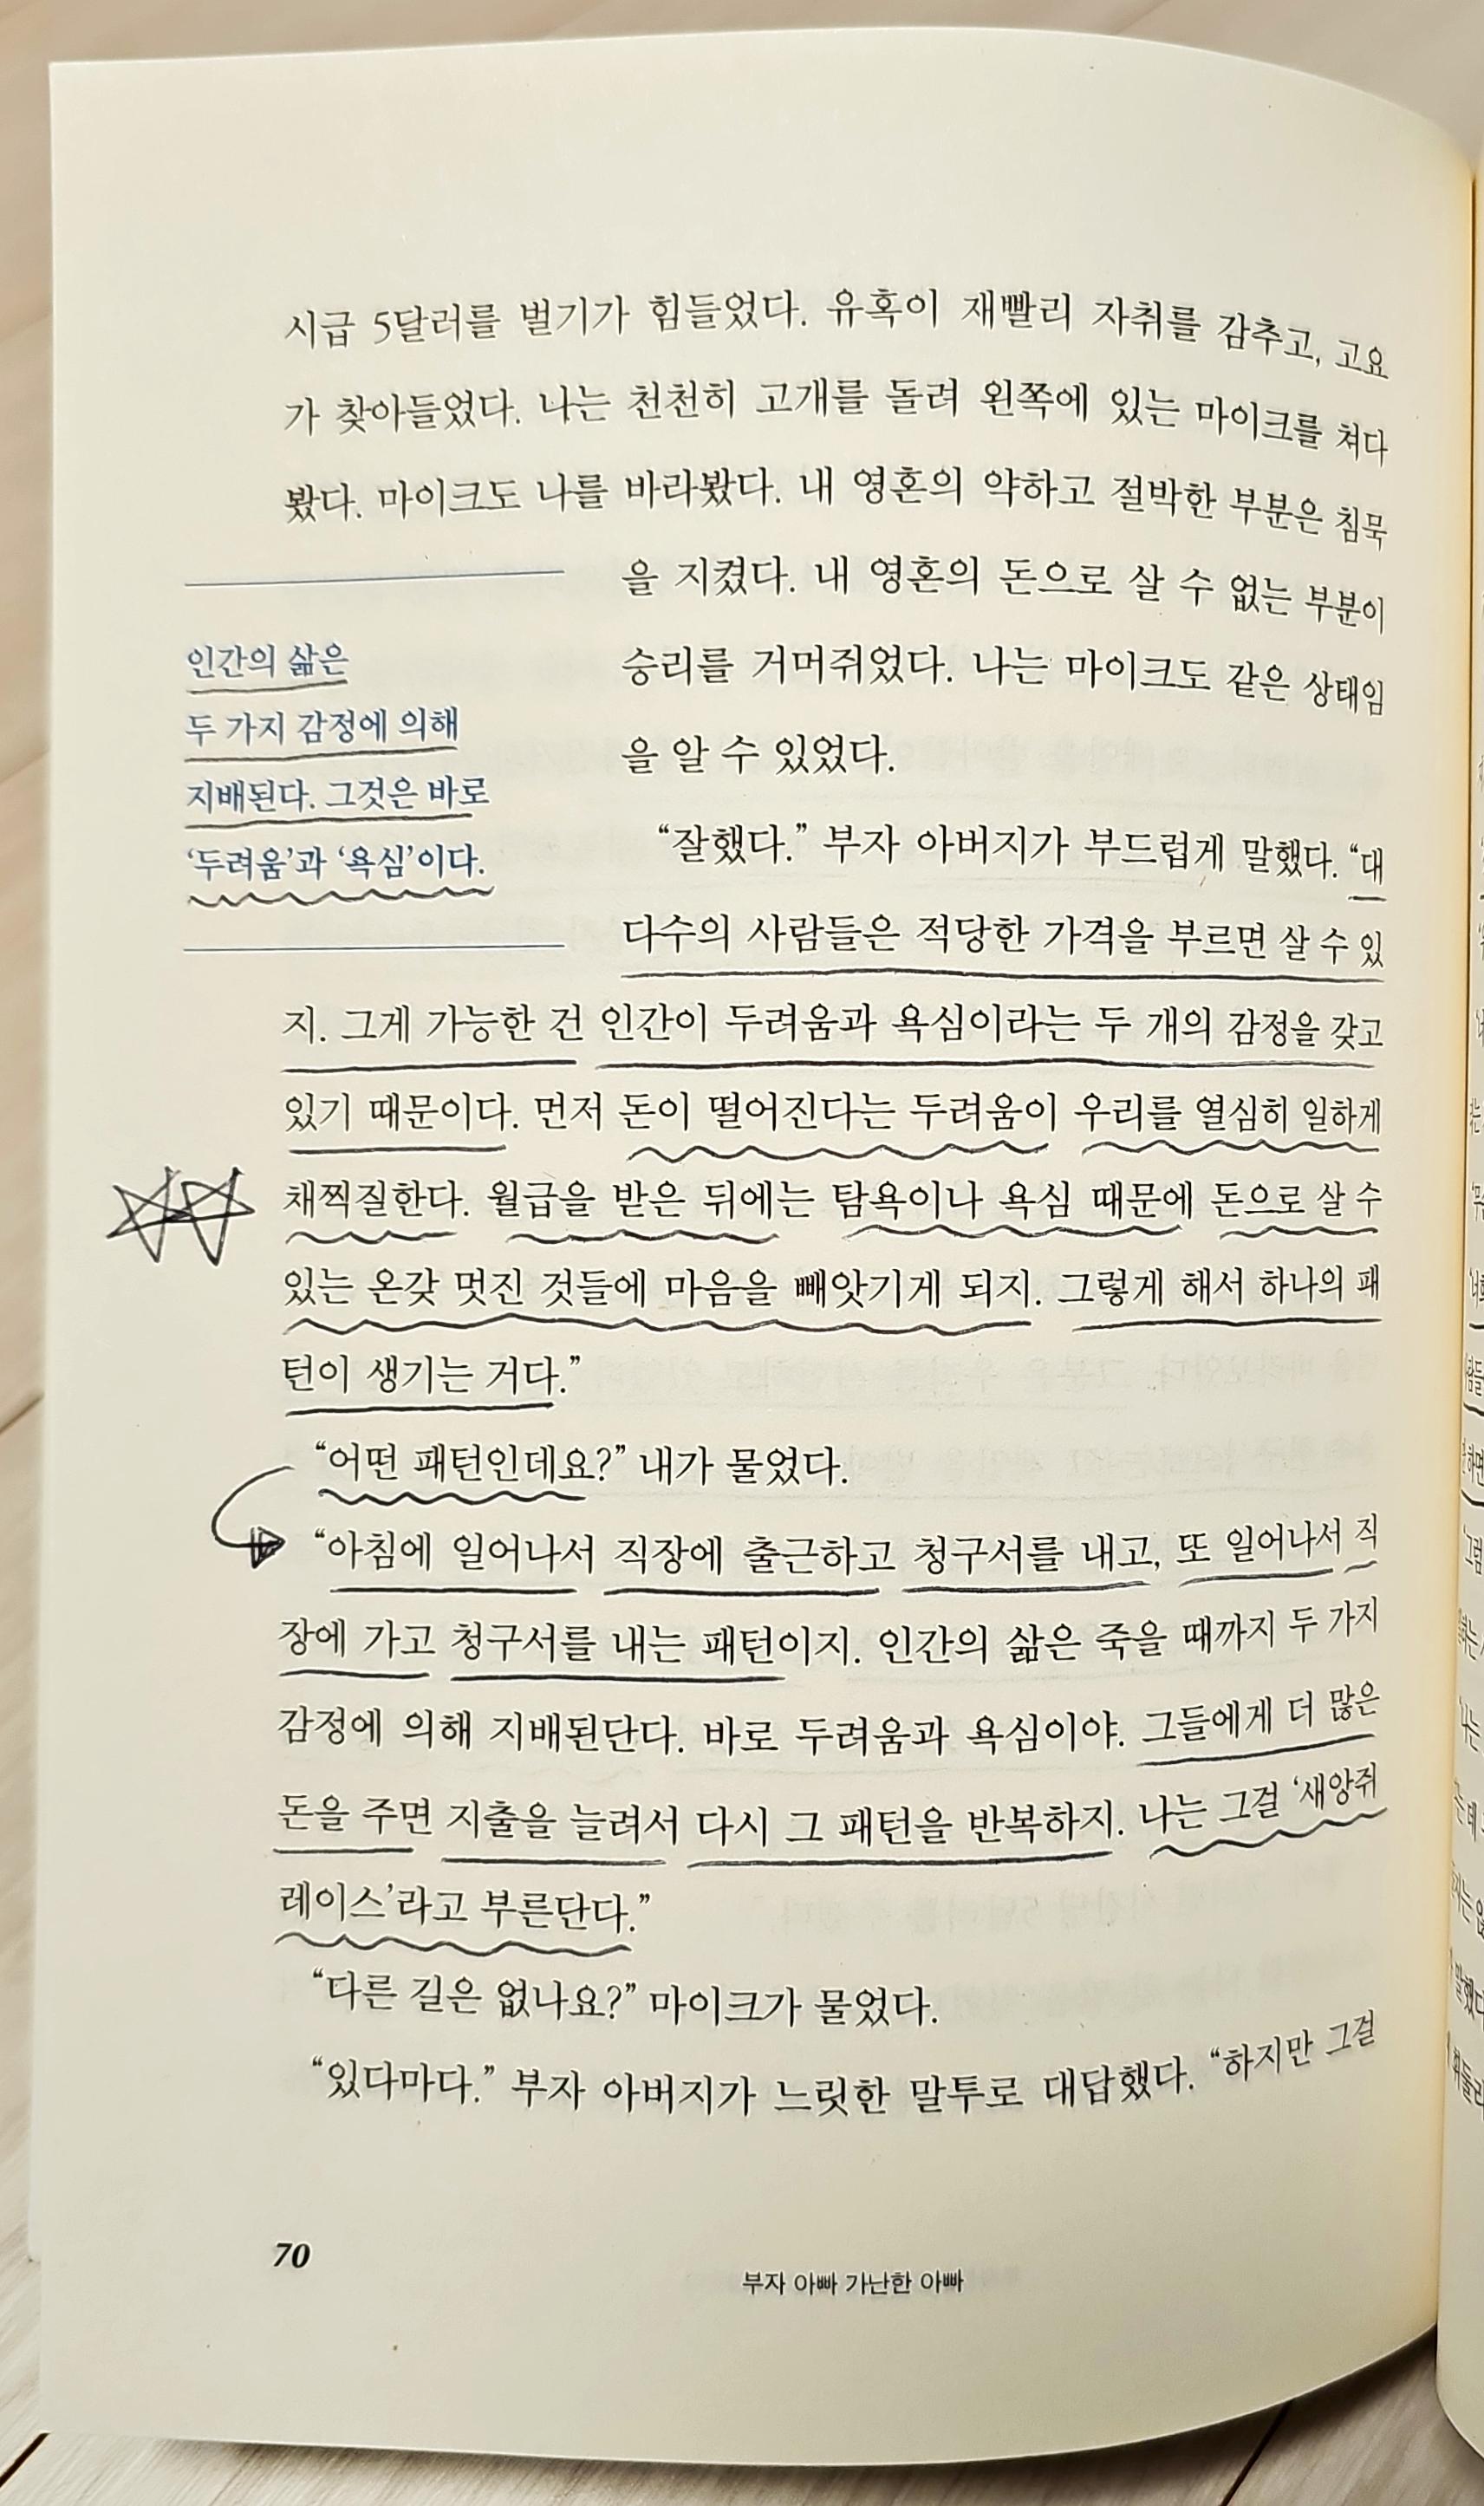 시급 5달러를 벌기가 힘들었다. 유혹이 재빨리 자취를 감추고, 고요
가 찾아들었다. 나는 천천히 고개를 돌려 왼쪽에 있는 마이크를 쳐다
봤다. 마이크도 나를 바라봤다. 내 영혼의 약하고 절박한 부분은 침묵
을 지켰다. 내 영혼의 돈으로 살 수 없는 부분이
승리를 거머쥐었다. 나는 마이크도 같은 상태임
을 알 수 있었다.
인간의 삶은
두 가지 감정에 의해
지배된다. 그것은 바로
‘두려움’과 ‘욕심’이다.
“잘했다.” 부자 아버지가 부드럽게 말했다. “대
다수의 사람들은 적당한 가격을 부르면 살 수 있
지. 그게 가능한 건 인간이 두려움과 욕심이라는 두 개의 감정을 갖고
있기 때문이다. 먼저 돈이 떨어진다는 두려움이 우리를 열심히 일하게
채찍질한다. 월급을 받은 뒤에는 탐욕이나 욕심 때문에 돈으로 살 수
있는 온갖 멋진 것들에 마음을 빼앗기게 되지. 그렇게 해서 하나의 패
턴이 생기는 거다.”
“어떤 패턴인데요?” 내가 물었다.
“아침에 일어나서 직장에 출근하고 청구서를 내고, 또 일어나서 직
장에 가고 청구서를 내는 패턴이지. 인간의 삶은 죽을 때까지 두 가지
감정에 의해 지배된단다. 바로 두려움과 욕심이야. 그들에게 더 많은
돈을 주면 지출을 늘려서 다시 그 패턴을 반복하지. 나는 그걸 ‘새앙쥐
레이스’라고 부른단다.”
“다른 길은 없나요?” 마이크가 물었다.
“있다마다.” 부자 아버지가 느릿한 말투로 대답했다. “하지만 그걸
70
부자 아빠 가난한 아빠